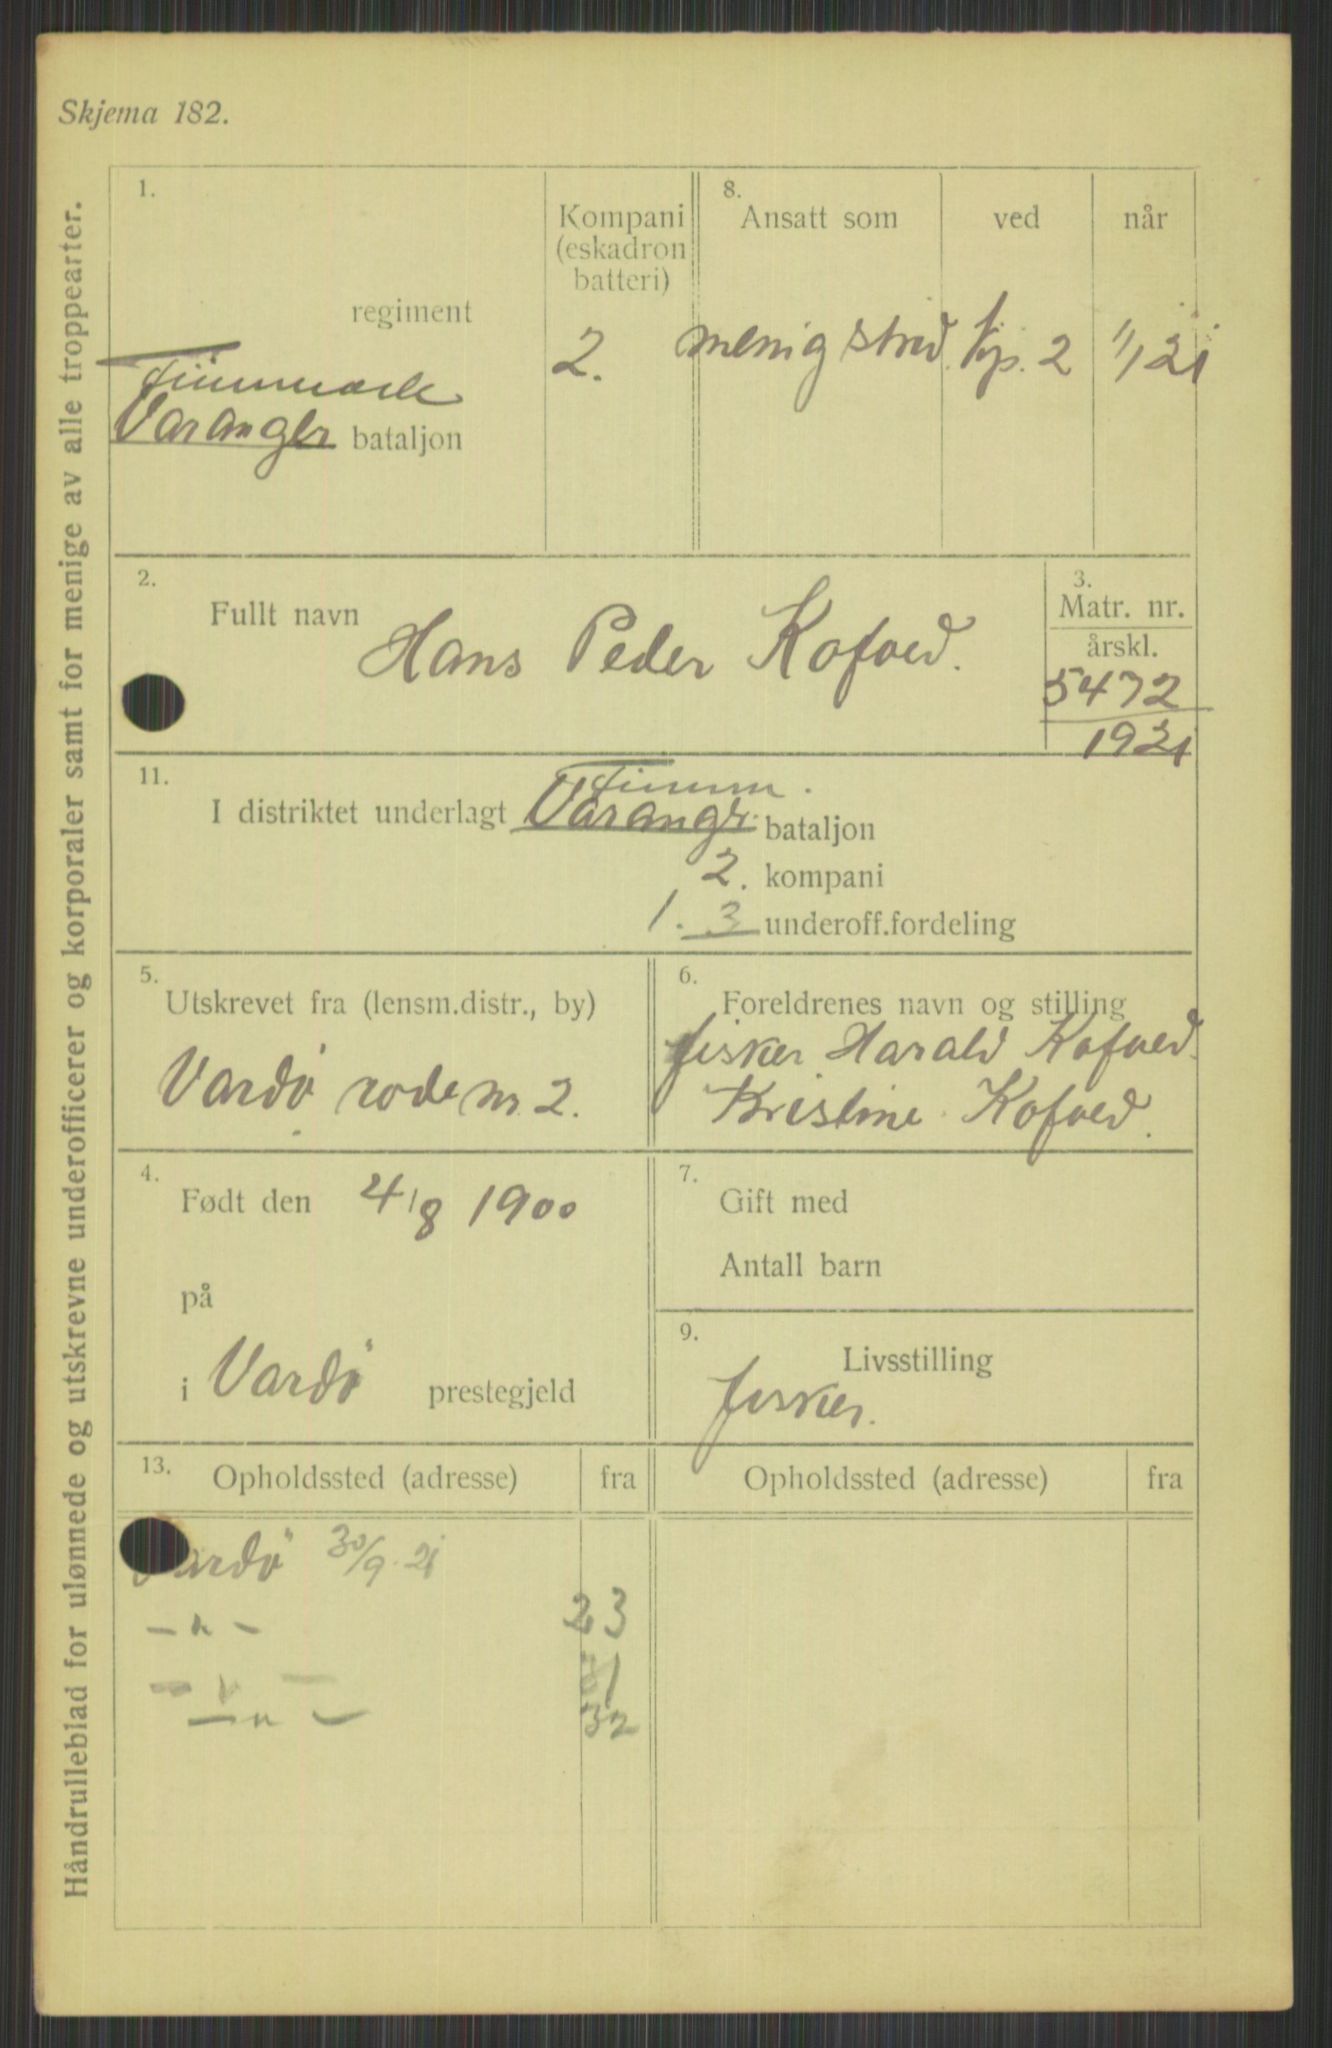 Skjema 182.
Håndrulleblad for ulønnede og utskrevne underofficerer og korporaler samt for menige av alle troppearter.
1.
regiment
Finnmark
Varanger bataljon
Kompani
(eskadron
batteri)
2.
8.
Ansatt som
ved
når
menig strid. kp. 2 1/1 21
2.
Fullt navn
Hans Peder Kofoed.
3.
Matr. nr.
årskl.
5472
1921
11.
Finnm.
I distriktet underlagt Varangr. bataljon
2. kompani
1. 3 underoff.fordeling
5.
Utskrevet fra (lensm.distr., by)
Vardö rode nr 2.
6.
Foreldrenes navn og stilling
fisker Harald Kofoed.
Kristine Kofoed.
4.
Født den 4/8 1900
på
i Vardö prestegjeld
7.
Gift med
Antall barn
9.
Livsstilling
fisker.
13.
Opholdssted (adresse)
fra
Opholdssted (adresse)
fra
Vardö 30/9. 21
— " — 23
— " — 31
— " — 32